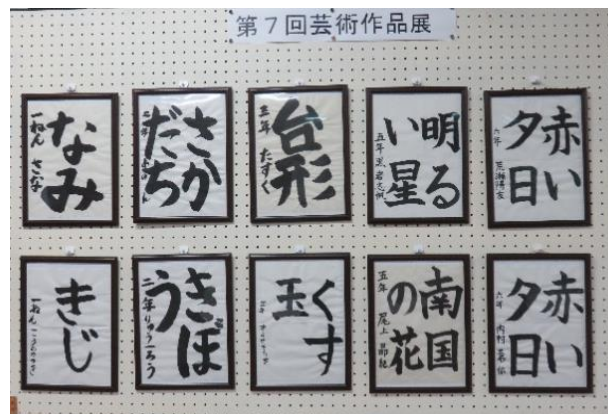 第7回芸術作品展
なみ
一ねん さな
さか
だち
台形
三年 たすく
明る
い星
五年
赤い
夕日
六年
きじ
一ねん
さほ
う
二年 りゅうたろう
くす
玉
南国
の花
五年 尾上
赤い
夕日
六年